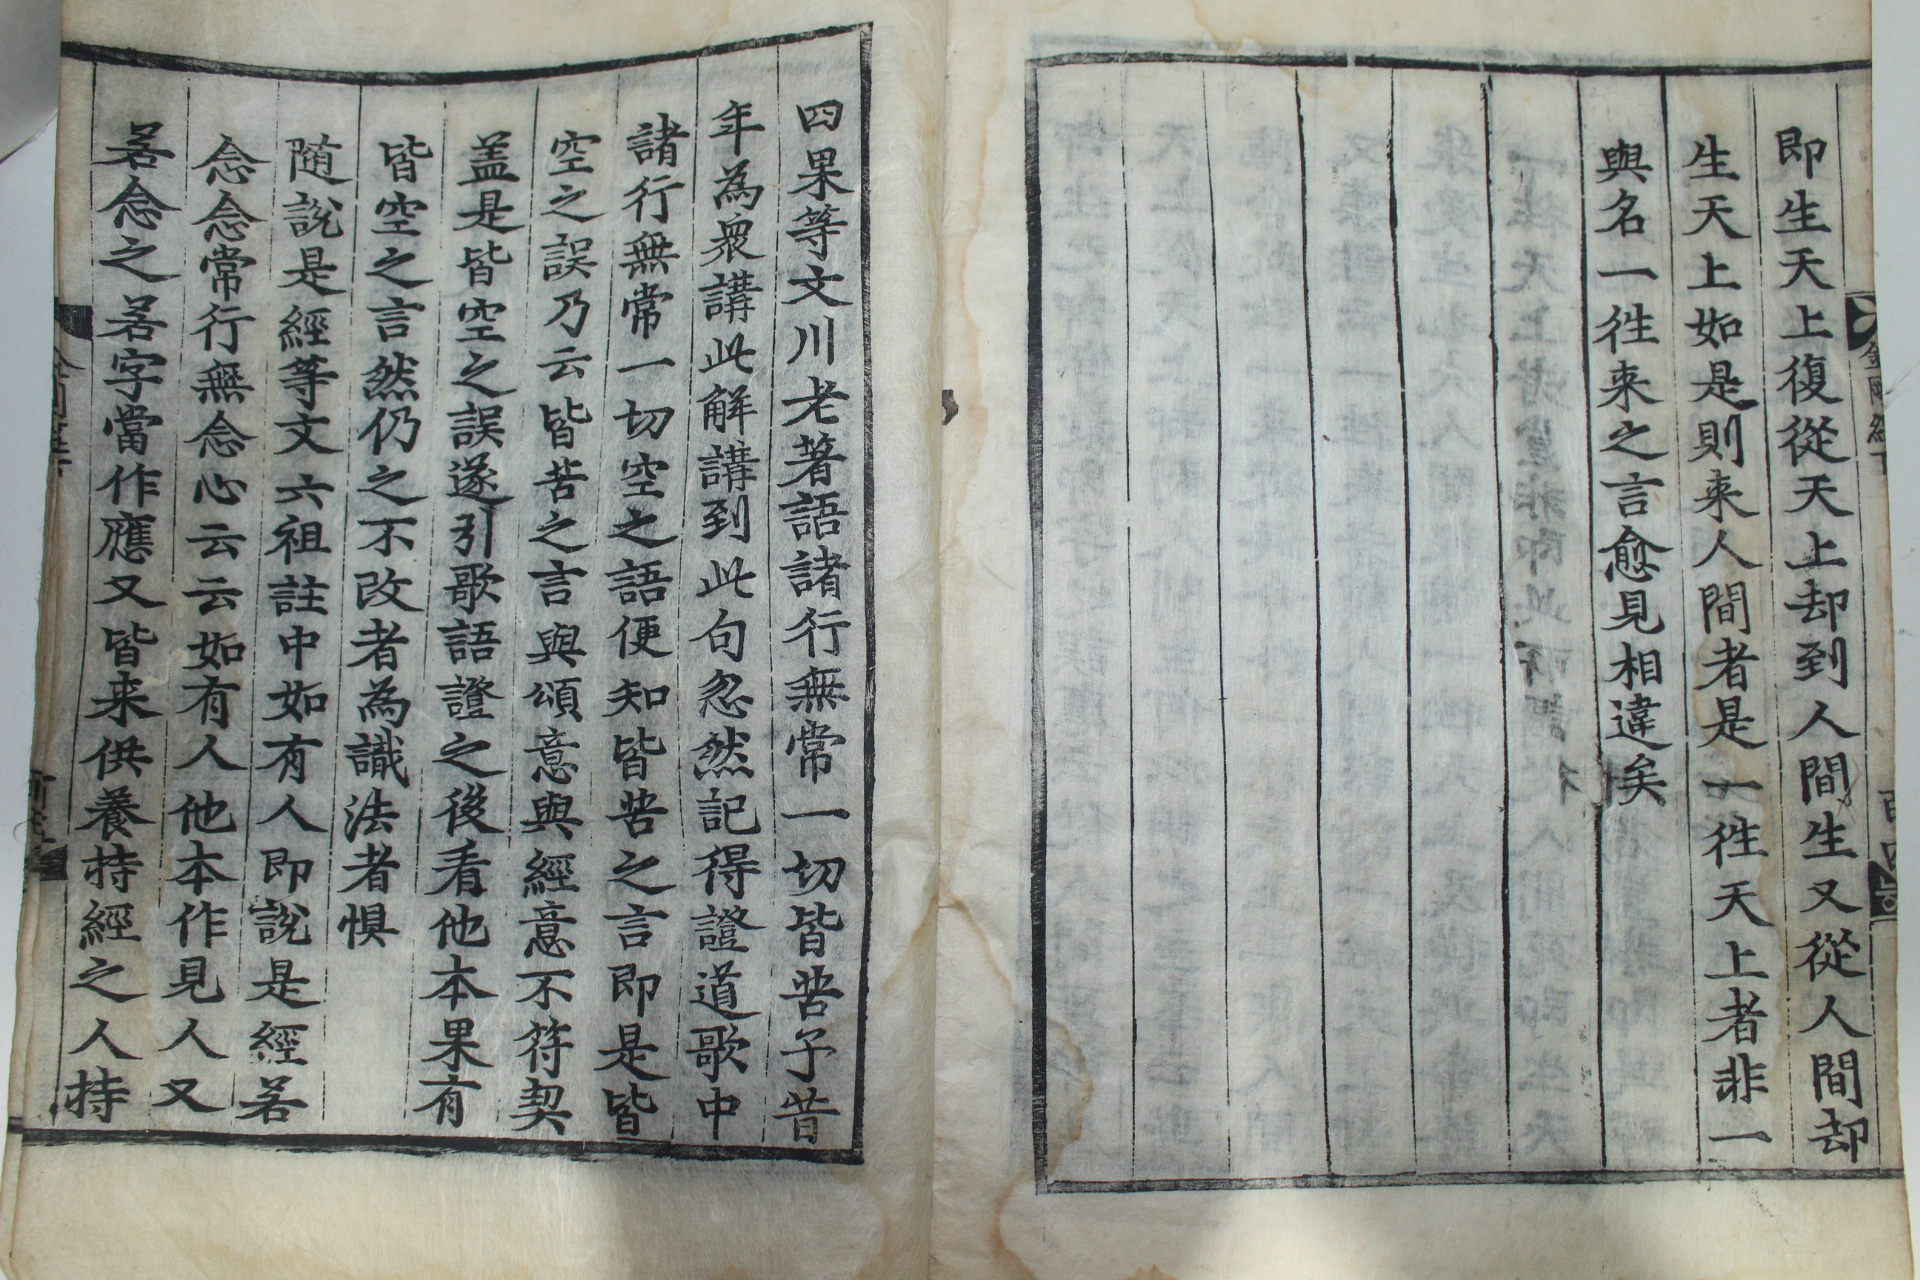 即生天上復從天上却到人間生又從人間却
生天上如是則来人間者是一徃天上者非一
與名一徃来之言愈見相違矣
四果等文川老著語諸行無常一切皆苦予昔
年為衆講此解講到此句忽然記得證道歌中
諸行無常一切空之語便知皆苦之言即是皆
空之誤乃云皆苦之言與頌意與經意不符契
盖是皆空之誤遂引歌語證之後看他本果有
皆空之言然仍之不改者為識法者懼
随說是經等文六祖註中如有人即說是經若
念念常行無念心云云如有人他本作見人又
若念之若字當作應又皆来供養持經之人持